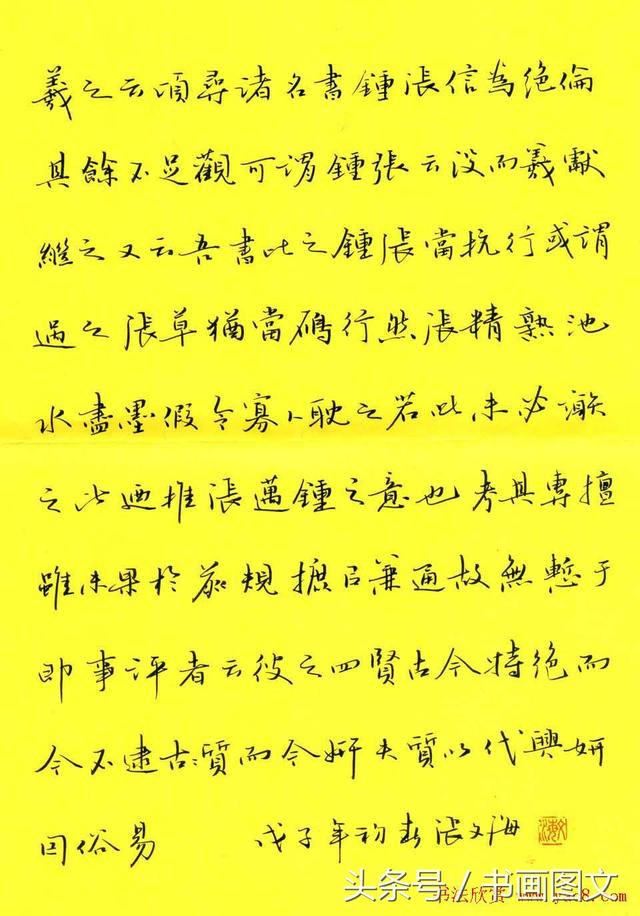 羲之云頃尋諸名書鍾張信為絕倫
其餘不足觀可謂鍾張云沒而羲獻
繼之又云吾書比之鍾張當抗行或謂
過之張草猶當鴈行然張精熟池
水盡墨假令寡人耽之若此未必謝
之此迺推張邁鍾之意也考其專擅
雖未果於前規摭以兼通故無慙于
即事評者云彼之四賢古今特絕而
今不逮古々質而今妍夫質以代興妍
因俗易 戊子年初春張文海
头条号/书画图文
书法欣赏